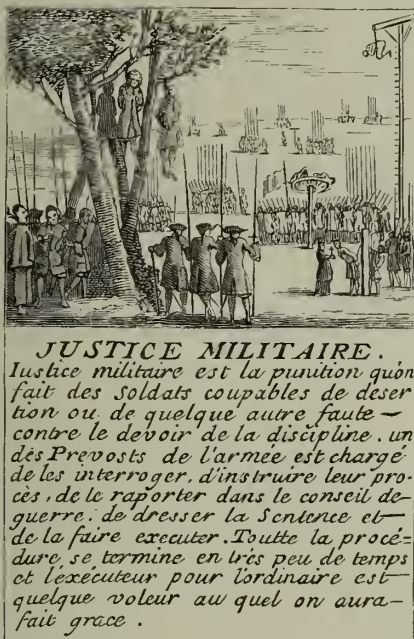 JUSTICE MILITAIRE.
Iustice militaire est la punition qu'on
fait des soldats coupables de deser
tion ou de quelque autre faute —
contre le devoir de la discipline. un
des Prevosts de l'armée est chargé
de les interroger, d'instruire leur pro-
cés, de le raporter dans le conseil de
guerre. de dresser la Sentence et —
de la faire executer. Toutte la procé=
dure, se termine en trés peu de temps
et l'exécuteur pour l'ordinaire est —
quelque voleur au quel on aura —
fait grace.